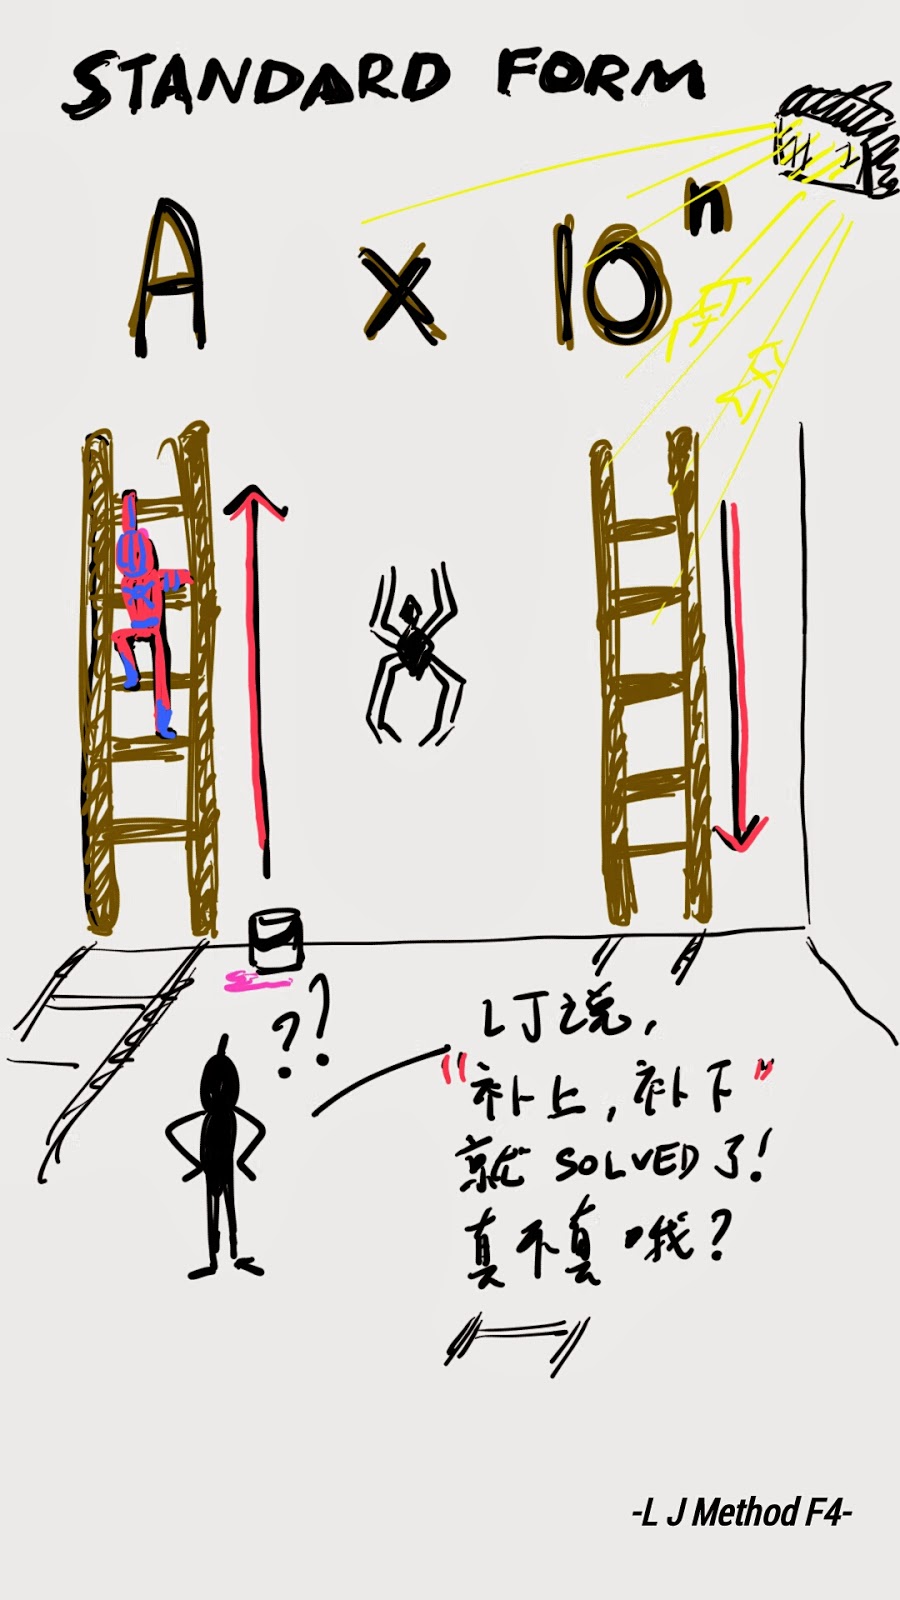 STANDARD FORM
A x 10ⁿ
??
LJ说,
"补上,补下"
就 SOLVED 了!
真不真哦?
-L J Method F4-